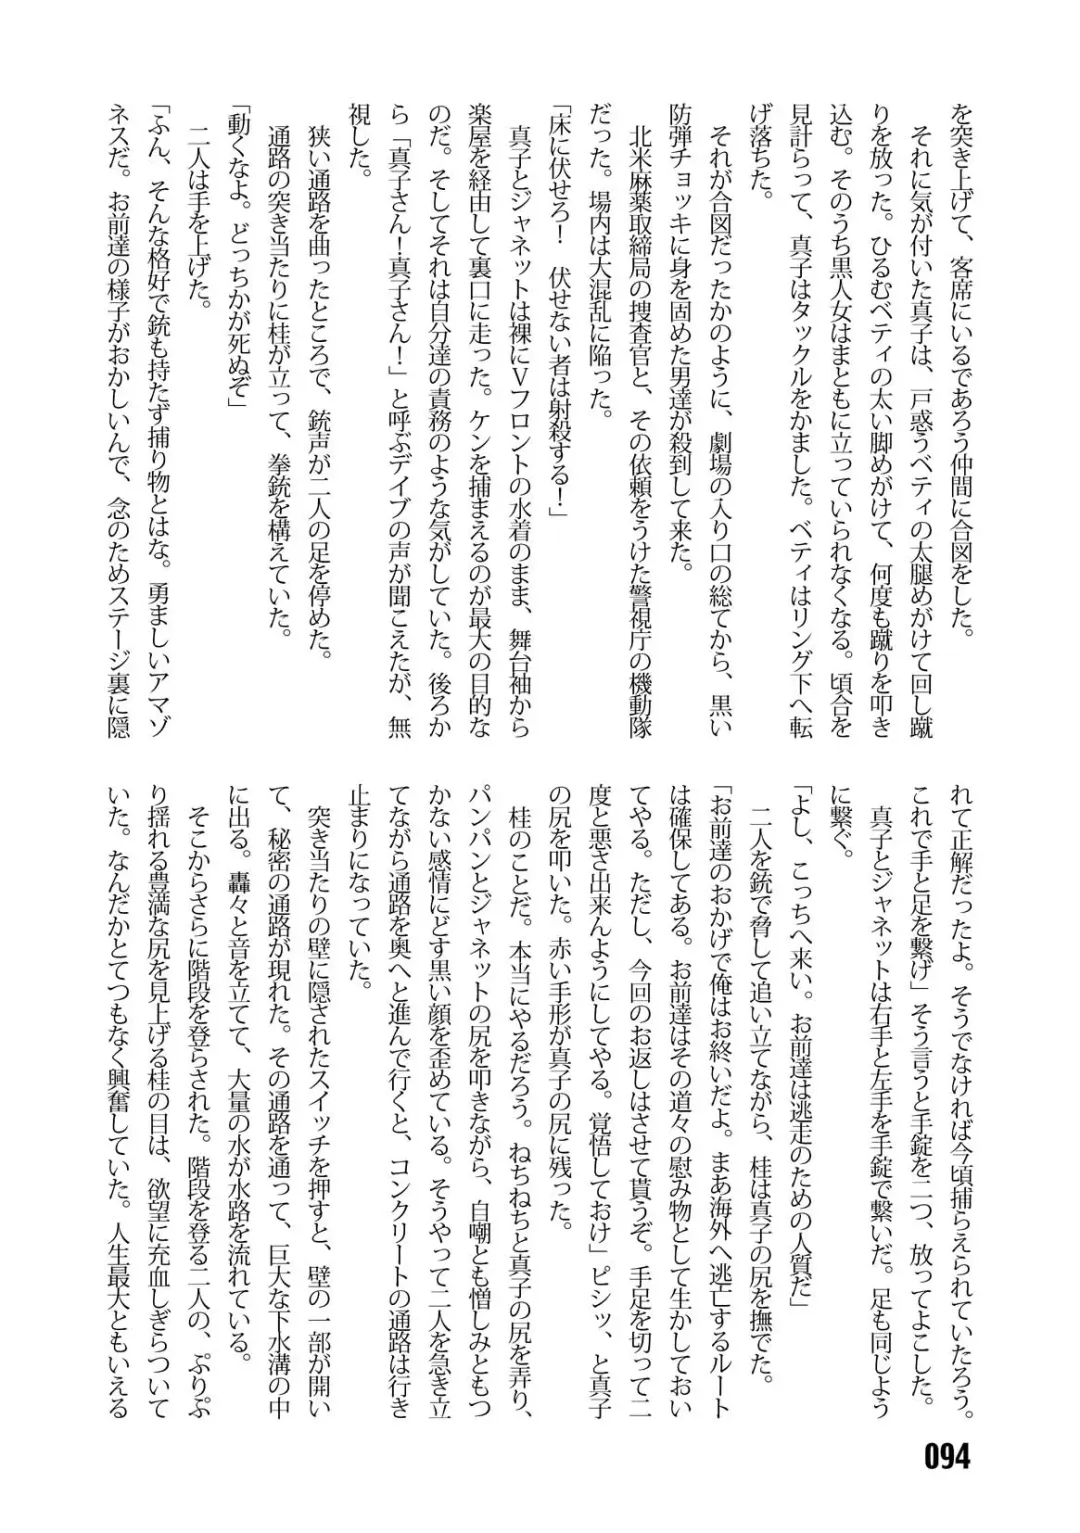 を突き上げて、客席にいるであろう仲間に合図をした。
それに気が付いた真子は、戸惑うベティの太腿めがけて回し蹴
りを放った。ひるむベティの太い脚めがけて、何度も蹴りを叩き
込む。そのうち黒人女はまともに立っていられなくなる。頃合を
見計らって、真子はタックルをかました。ベティはリング下へ転
げ落ちた。
それが合図だったかのように、劇場の入り口の総てから、黒い
防弾チョッキに身を固めた男達が殺到して来た。
北米麻薬取締局の捜査官と、その依頼をうけた警視庁の機動隊
だった。場内は大混乱に陥った。
「床に伏せろ！　伏せない者は射殺する！」
真子とジャネットは裸にＶフロントの水着のまま、舞台袖から
楽屋を経由して裏口に走った。ケンを捕まえるのが最大の目的な
のだ。そしてそれは自分達の責務のような気がしていた。後ろか
ら「真子さん！真子さん！」と呼ぶデイブの声が聞こえたが、無
視した。
狭い通路を曲ったところで、銃声が二人の足を停めた。
通路の突き当たりに桂が立って、拳銃を構えていた。
「動くなよ。どっちかが死ぬぞ」
二人は手を上げた。
「ふん、そんな格好で銃も持たず捕り物とはな。勇ましいアマゾ
ネスだ。お前達の様子がおかしいんで、念のためステージ裏に隠
れて正解だったよ。そうでなければ今頃捕らえられていたろう。
これで手と足を繋げ」そう言うと手錠を二つ、放ってよこした。
真子とジャネットは右手と左手を手錠で繋いだ。足も同じよう
に繋ぐ。
「よし、こっちへ来い。お前達は逃走のための人質だ」
二人を銃で脅して追い立てながら、桂は真子の尻を撫でた。
「お前達のおかげで俺はお終いだよ。まあ海外へ逃亡するルート
は確保してある。お前達はその道々の慰み物として生かしておい
てやる。ただし、今回のお返しはさせて貰うぞ。手足を切って二
度と悪さ出来んようにしてやる。覚悟しておけ」ピシッ、と真子
の尻を叩いた。赤い手形が真子の尻に残った。
桂のことだ。本当にやるだろう。ねちねちと真子の尻を弄り、
パンパンとジャネットの尻を叩きながら、自嘲とも憎しみともつ
かない感情にどす黒い顔を歪めている。そうやって二人を急き立
てながら通路を奥へと進んで行くと、コンクリートの通路は行き
止まりになっていた。
突き当たりの壁に隠されたスイッチを押すと、壁の一部が開い
て、秘密の通路が現れた。その通路を通って、巨大な下水溝の中
に出る。轟々と音を立てて、大量の水が水路を流れている。
そこからさらに階段を登らされた。階段を登る二人の、ぷりぷ
り揺れる豊満な尻を見上げる桂の目は、欲望に充血しぎらついて
いた。なんだかとてつもなく興奮していた。人生最大ともいえる
094